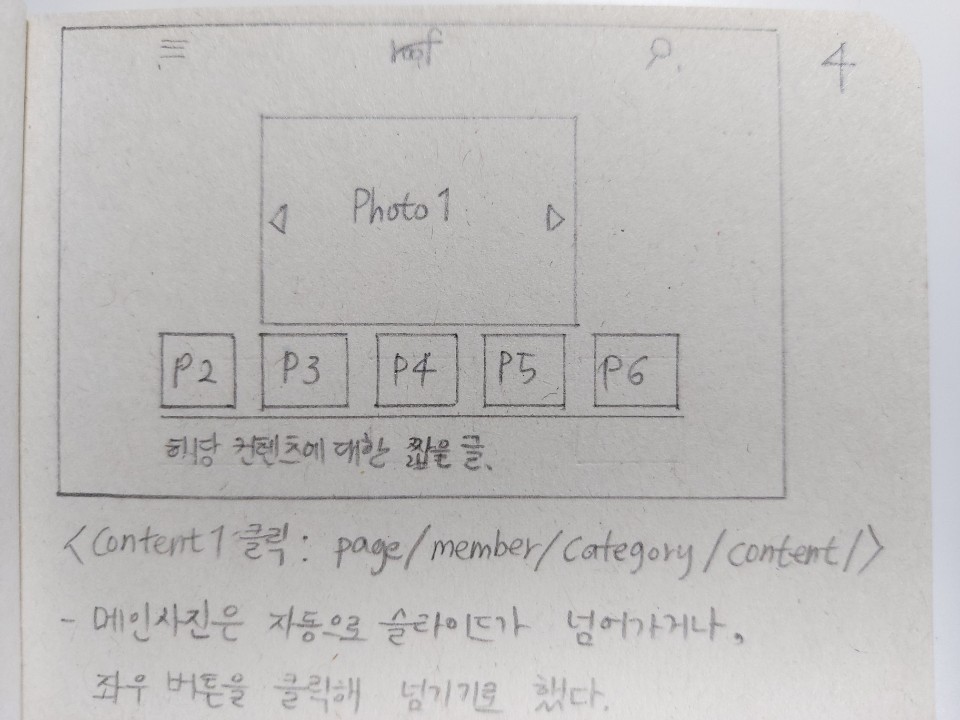 roof
4
Photo 1
P2 P3 P4 P5 P6
해당 컨텐츠에 대한 짧을 글.
<Content 1 클릭 : page/member/category/content/>
- 메인사진은 자동으로 슬라이드가 넘어가거나,
좌우 버튼을 클릭해 넘기기로 했다.